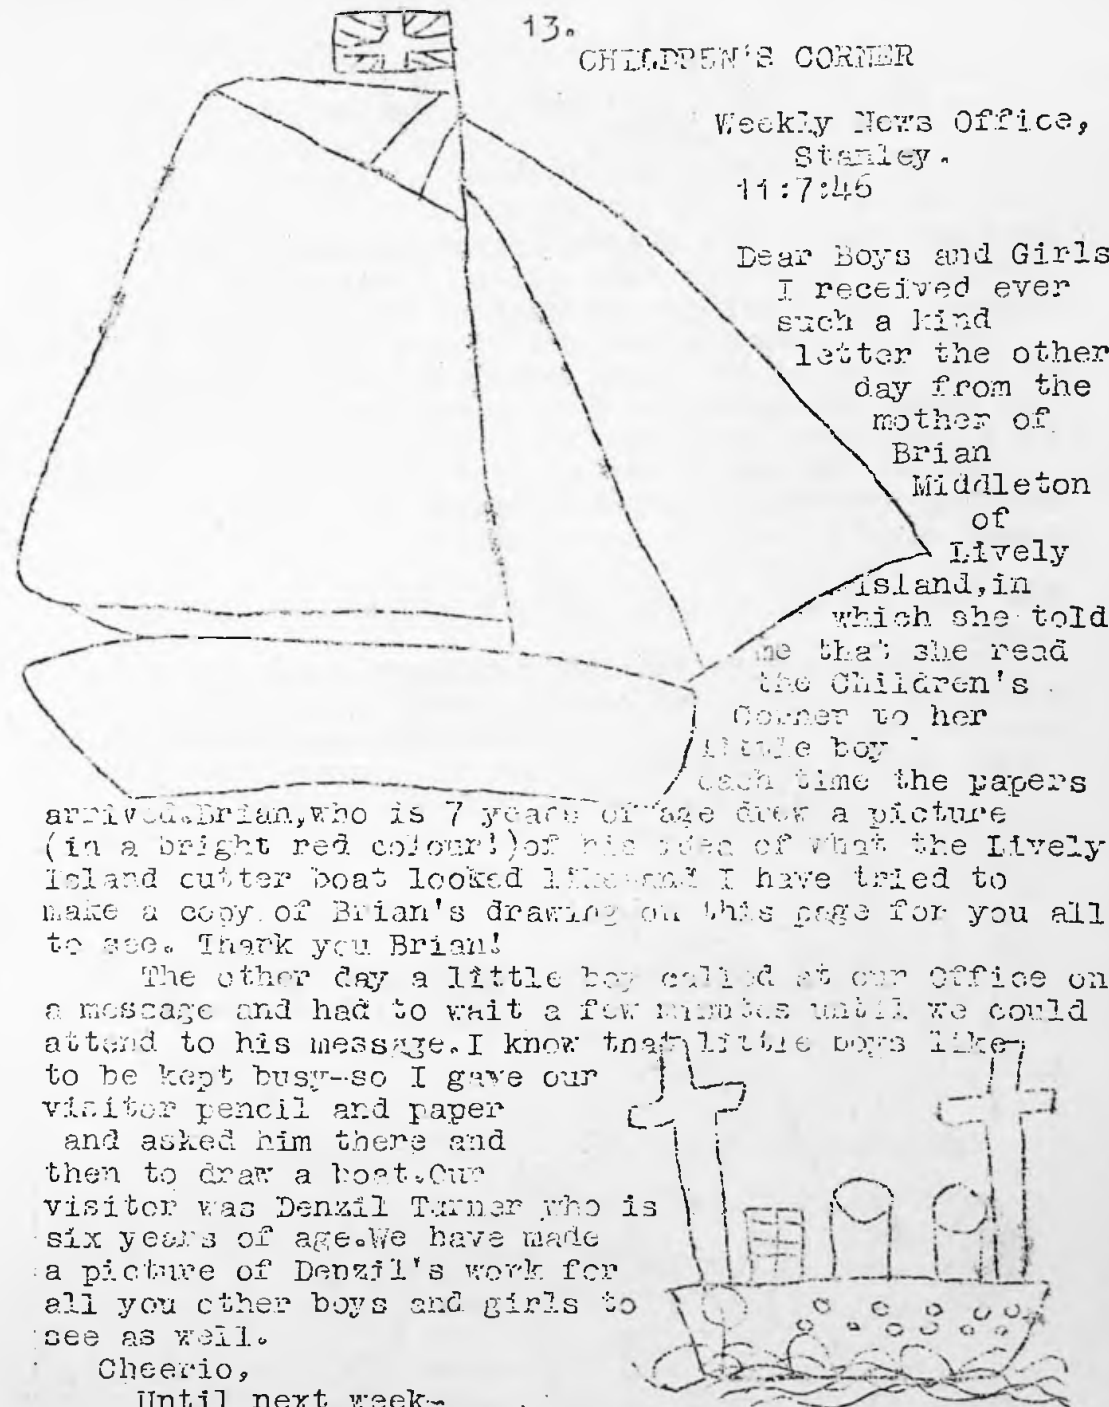 13.
CHILDREN'S CORNER
Weekly News Office,
Stanley.
11:7:46
Dear Boys and Girls
I received ever
such a kind
letter the other
day from the
mother of
Brian
Middleton
of
Lively
Island,in
which she told
me that she read
the Children's
Corner to her
little boy
each time the papers
arrived.Brian,who is 7 years of age drew a picture
(in a bright red colour!)of his idea of what the Lively
Island cutter boat looked like and I have tried to
make a copy of Brian's drawing on this page for you all
to see. Thank you Brian!
The other day a little boy called at our Office on
a message and had to wait a few minutes until we could
attend to his message.I know that little boys like
to be kept busy-so I gave our
visitor pencil and paper
and asked him there and
then to draw a boat.Our
visitor was Denzil Turner who is
six years of age.We have made
a picture of Denzil's work for
all you other boys and girls to
see as well.
Cheerio,
Until next week-